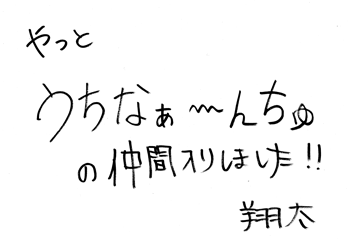 やっと
うちなぁ〜んちゅ
の仲間入りしました!!
翔太